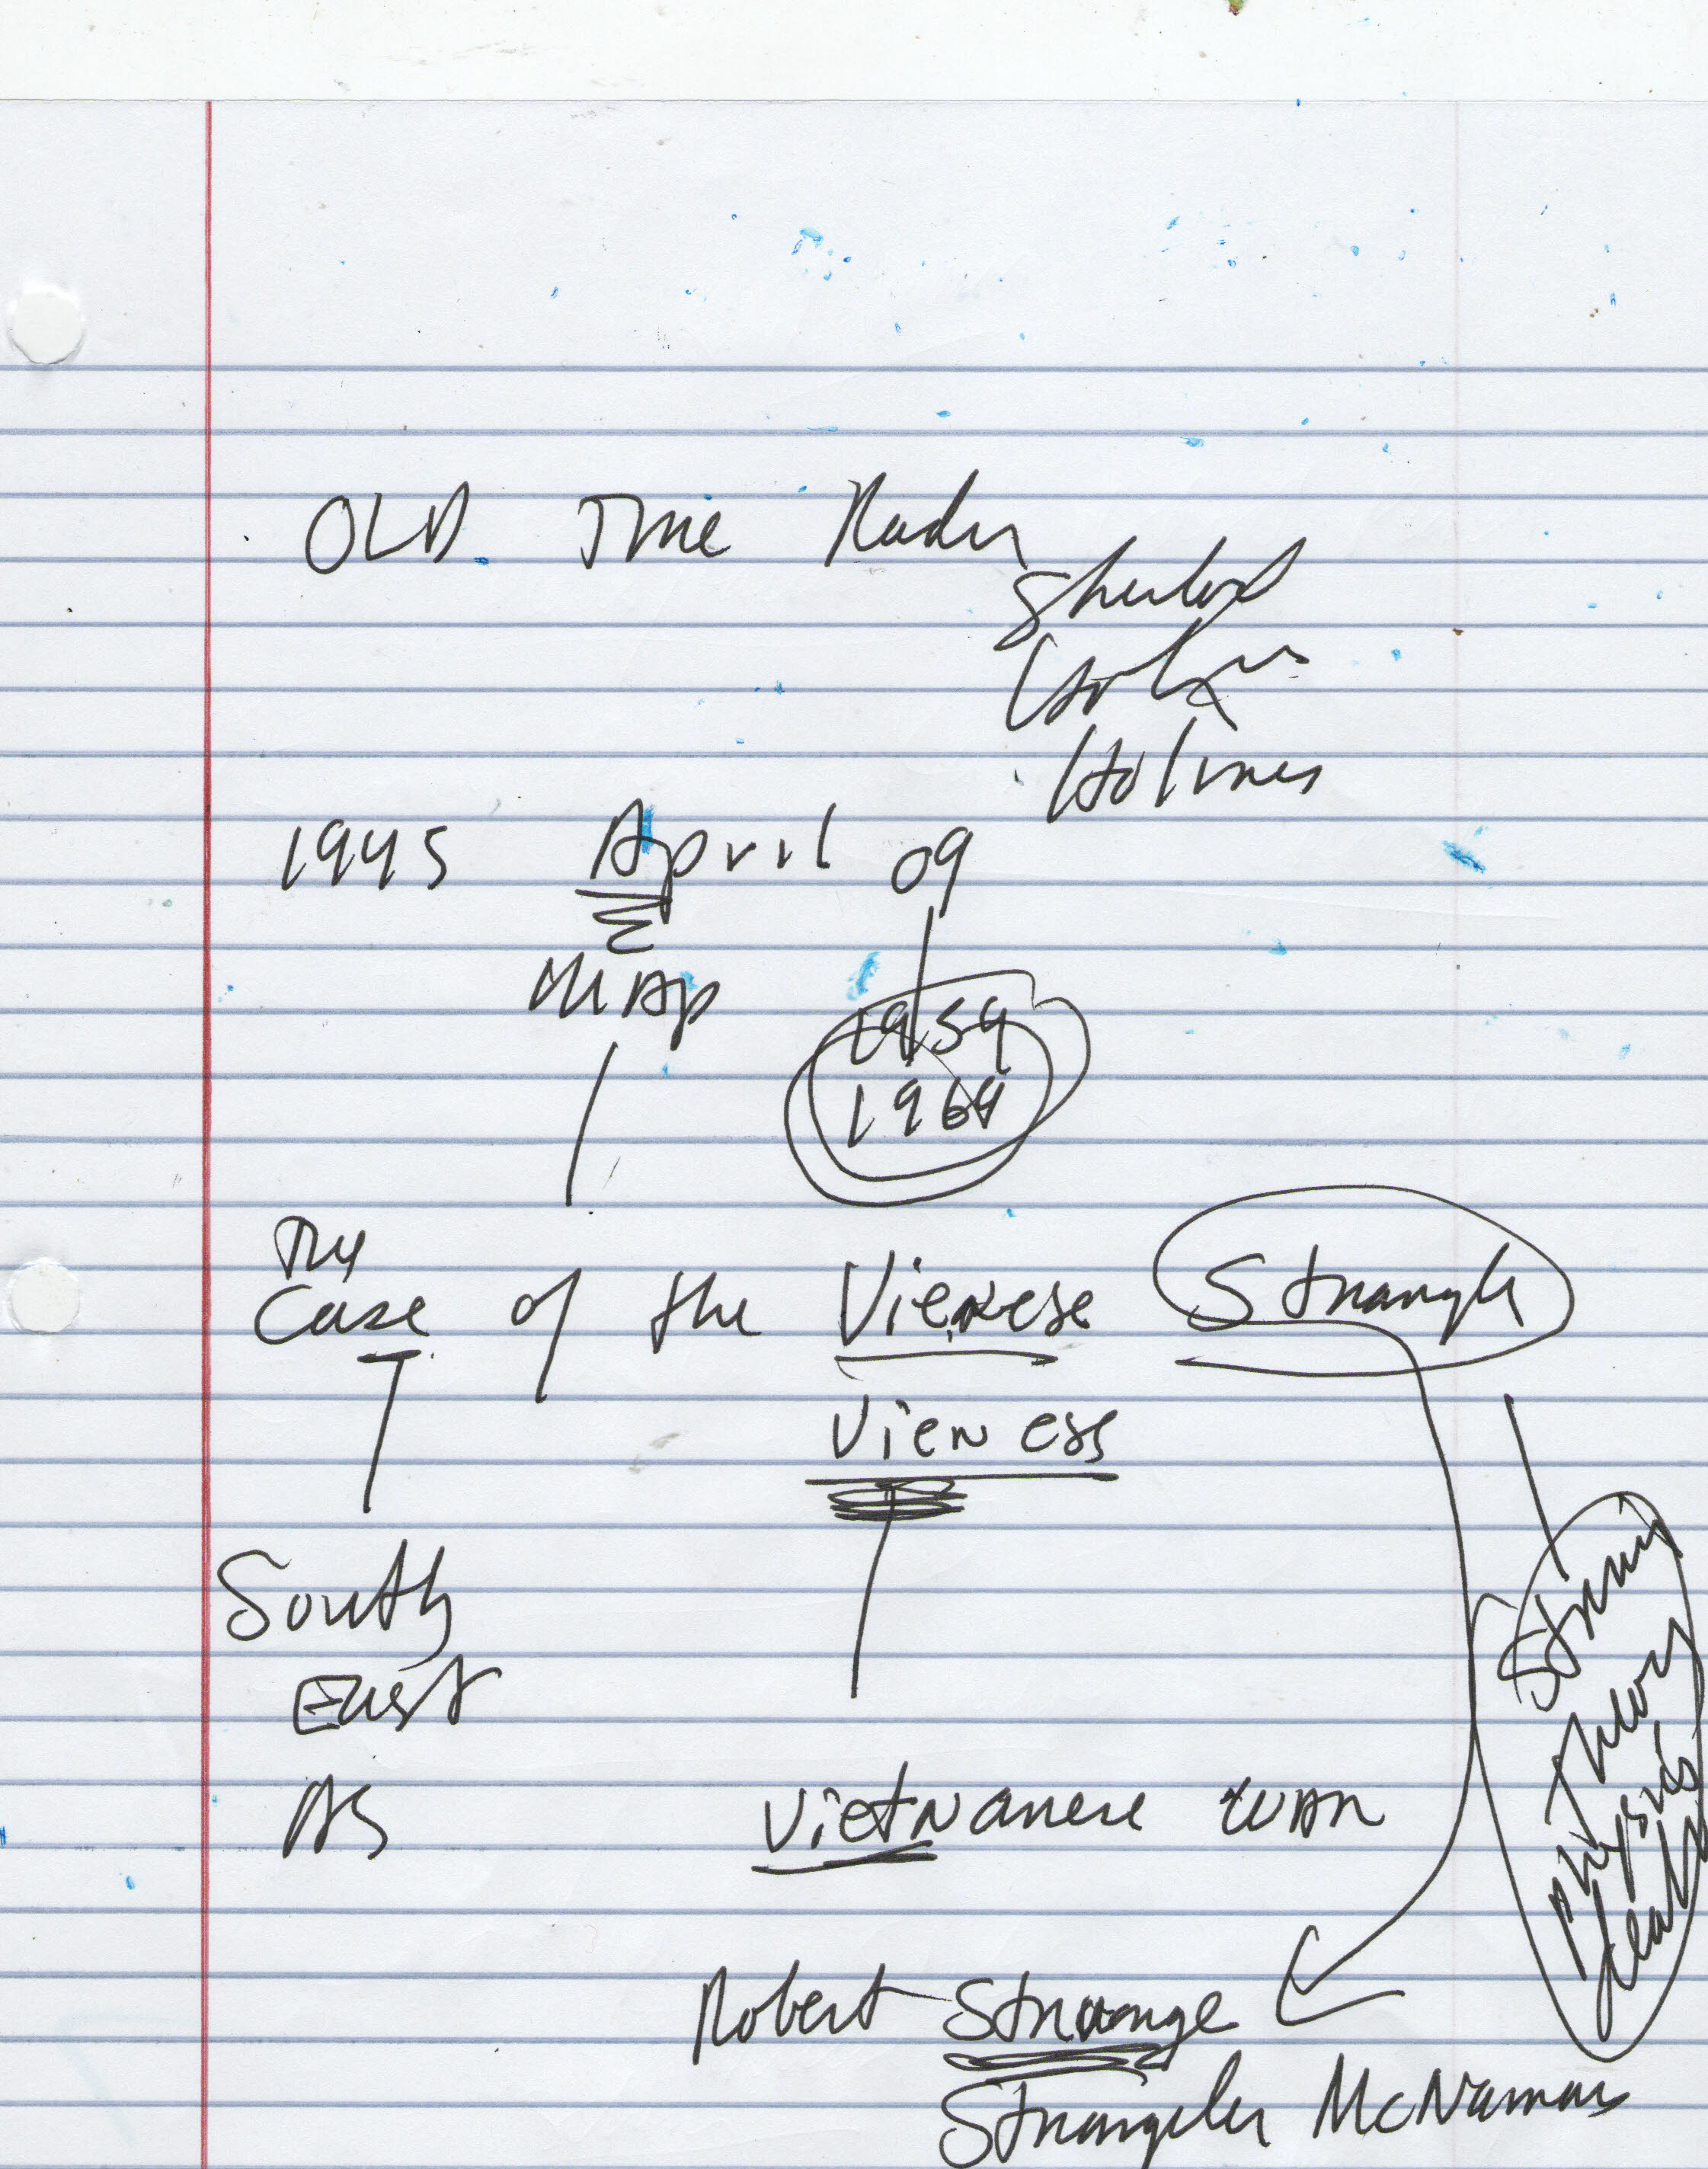 OLD Time Radio
Sherlock
Holmes
Holmes
1945 April 09
MAP
1959
1969
The
Case of the Vienese Strangle
Vieness
South
East
AS
Vietnamese War
String
Theory
Physics
death
Robert Strange
Strangler McNamara